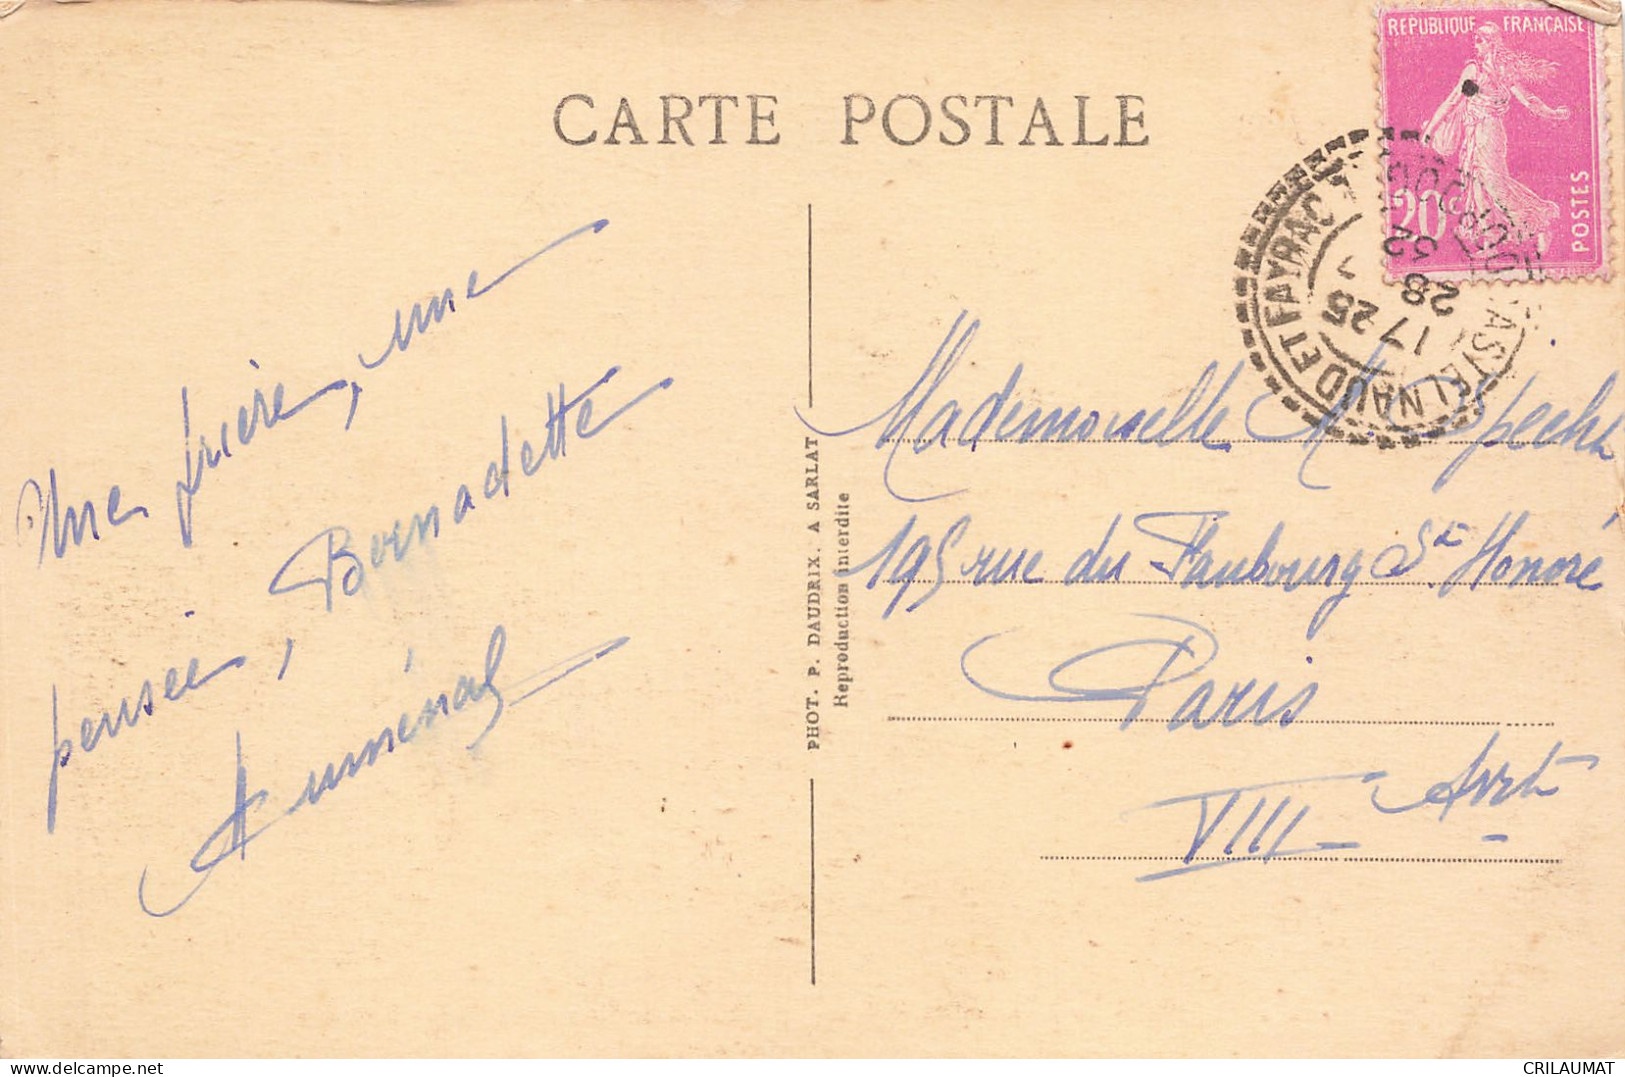 CARTE POSTALE
RÉPUBLIQUE FRANÇAISE
20c
POSTES
CASTELNAUD ET FAYRAC
17 25
28
32
Une prière, une
pensée, Bernadette
PHOT. P. DAUDRIX. A SARLAT
Reproduction interdite
Mademoiselle A.
195 rue du Faubourg St. Honoré
Paris
VIII Arrt
delcampe.net
CRILAUMAT